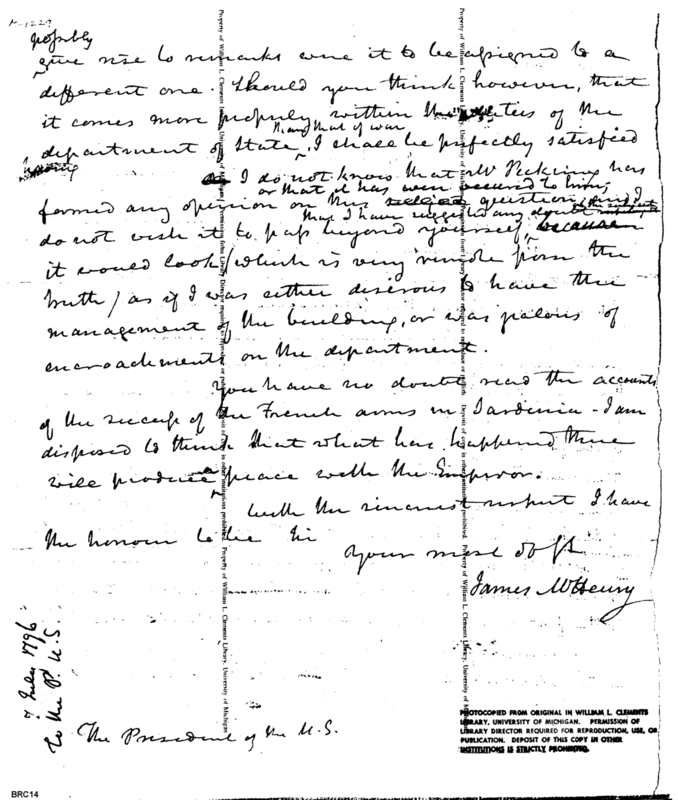 M-1229
possibly
give rise to remarks were it to be assigned to a
different one. Should you think however, that
it comes more properly within the duties of the
than that of war
department of State, I shall be perfectly satisfied
I do not know that Mr Pickering has
or that it has ever occured to him;
formed any opinion on this question, and I
that I have suggested any doubt
do not wish it to pass beyond yourself, because
it would look (which is very remote from the
truth) as if I was either desirous to have the
management of the building, or was jealous of
encroachments on the department.
You have no doubt read the accounts
of the success of the French arms in Sardinia - I am
disposed to think that what has happened there
will produce a peace with the Emperor.
With the sincerest respect I have
the honour to be Sir
Your most obt
James McHenry
7 July 1796
To the P. U.S.
The President of the U.S.
PHOTOCOPIED FROM ORIGINAL IN WILLIAM L. CLEMENTS
LIBRARY, UNIVERSITY OF MICHIGAN. PERMISSION OF
LIBRARY DIRECTOR REQUIRED FOR REPRODUCTION, USE, OR
PUBLICATION. DEPOSIT OF THIS COPY IN OTHER
INSTITUTIONS IS STRICTLY PROHIBITED.
Property of William L. Clements Library, University of Michigan
BRC14